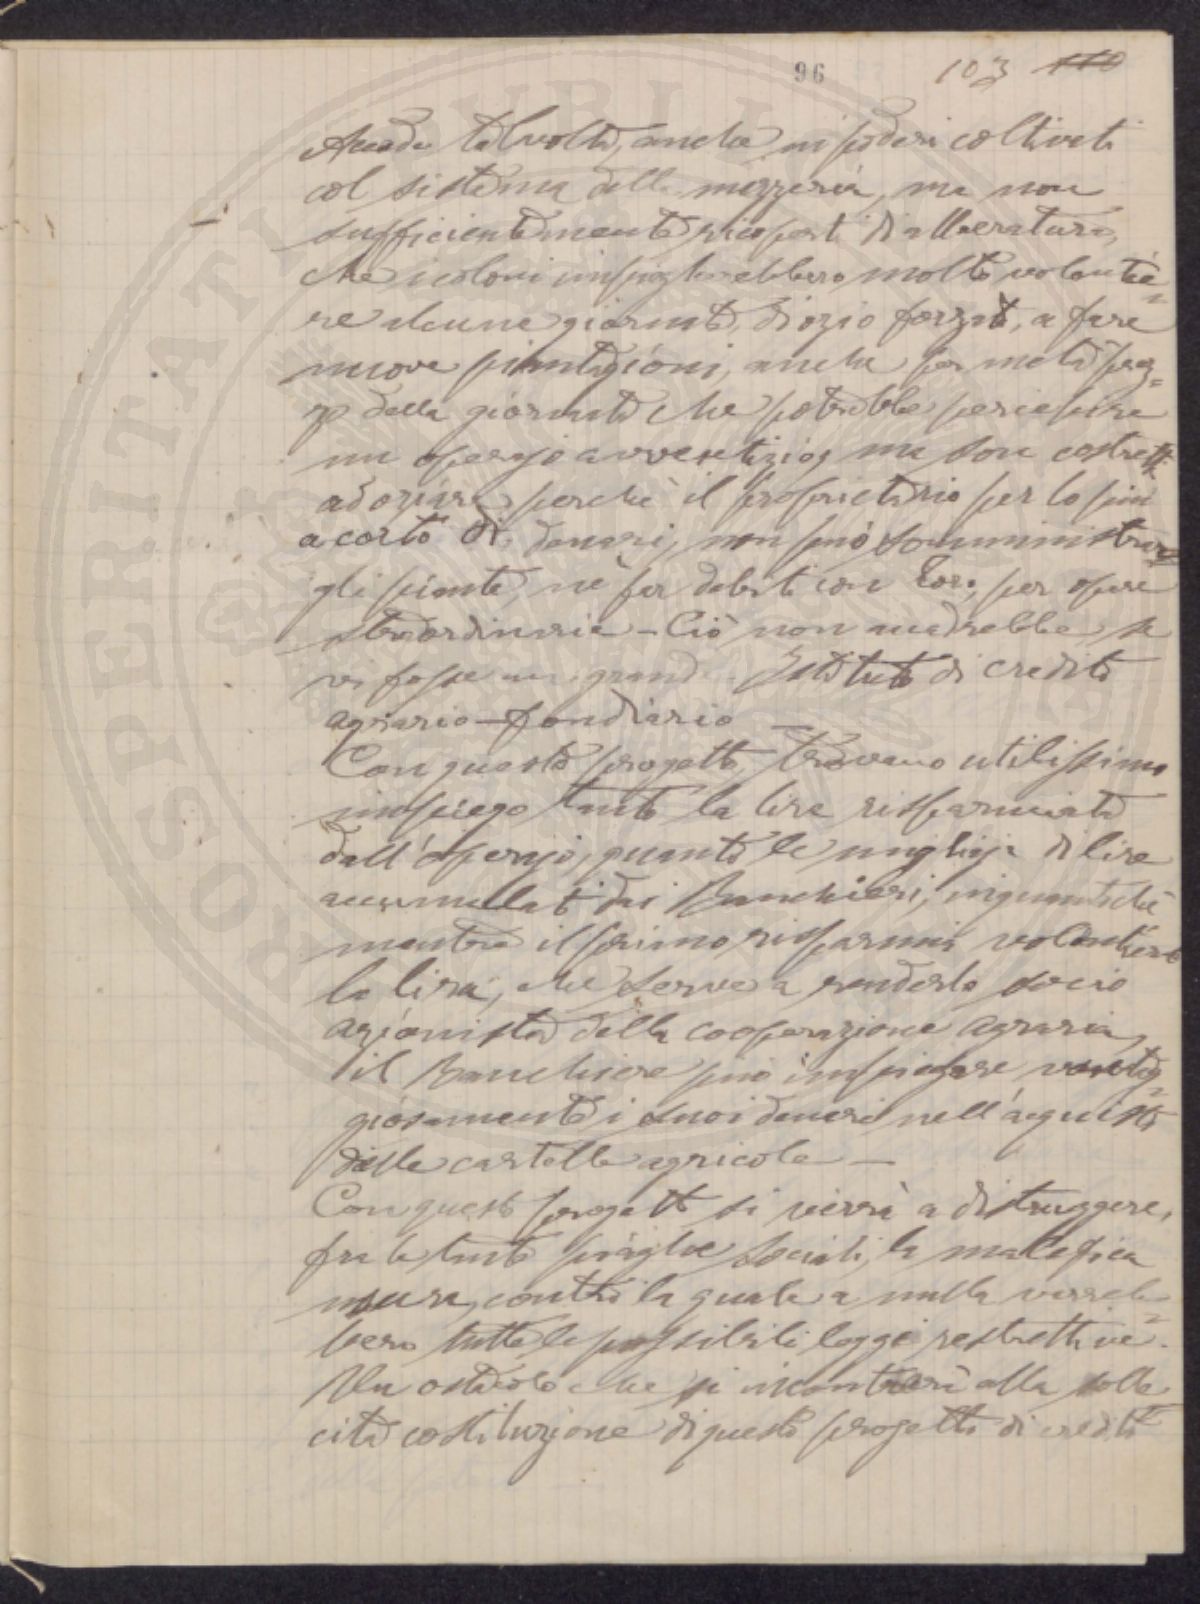 96 103 110
Accade talvolta, anche ni poderi coltivati
col sistema della mezzeria, ma non
sufficientemente ricoperti di alberatura,
che i coloni impiegherebbero molto volentie=
re alcune giornate, di ozio forzato, a fare
nuove piantagioni, anche per metà prez=
zo della giornata che potrebbe percepire
un operajo avventizio, ma son costretti
ad oziare perchè il proprietario per lo più
a corto di denari, non può somministrar
gli piante, nè far debiti con loro, per opere
straordinarie – Ciò non accadrebbe se
vi fosse un grande Istituto di credito
agrario–fondiario –
Con questo progetto, trovano utilissimo
impiego tanto la lira risparmiata
dall'operajo, quanto le migliaja di lire
accumulati dai Banchieri, inquantochè
mentre il primo risparmia volentieri
la lira, che serve a renderlo socio
azionista della cooperazione agraria,
il Banchiere può impiegare vantag=
giosamente i suoi denari nell'acquisto
delle cartelle agricole –
Con questo progetto si verrà a distruggere,
fra le tante piaghe sociali, la malefica
usura, contro la quale a nulla varreb=
bero tutte le possibili leggi restrittive.
Un ostacolo che si incontrerà alla solle
cita costituzione di questo progetto di credito
PROSPERITATI PUBLI